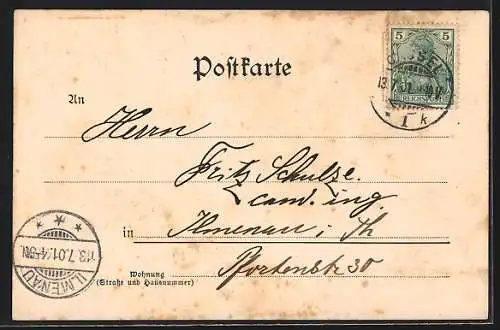 5 5
REICHSPOST
CASSEL
13.7.01
* 1 k
Postkarte
An
Herrn
Fritz Schulze
cand. ing.
in Ilmenau i. Th
Pfortenstr 30
Wohnung
(Straße und Hausnummer)
* * *
13.7.01. 4-5N.
ILMENAU